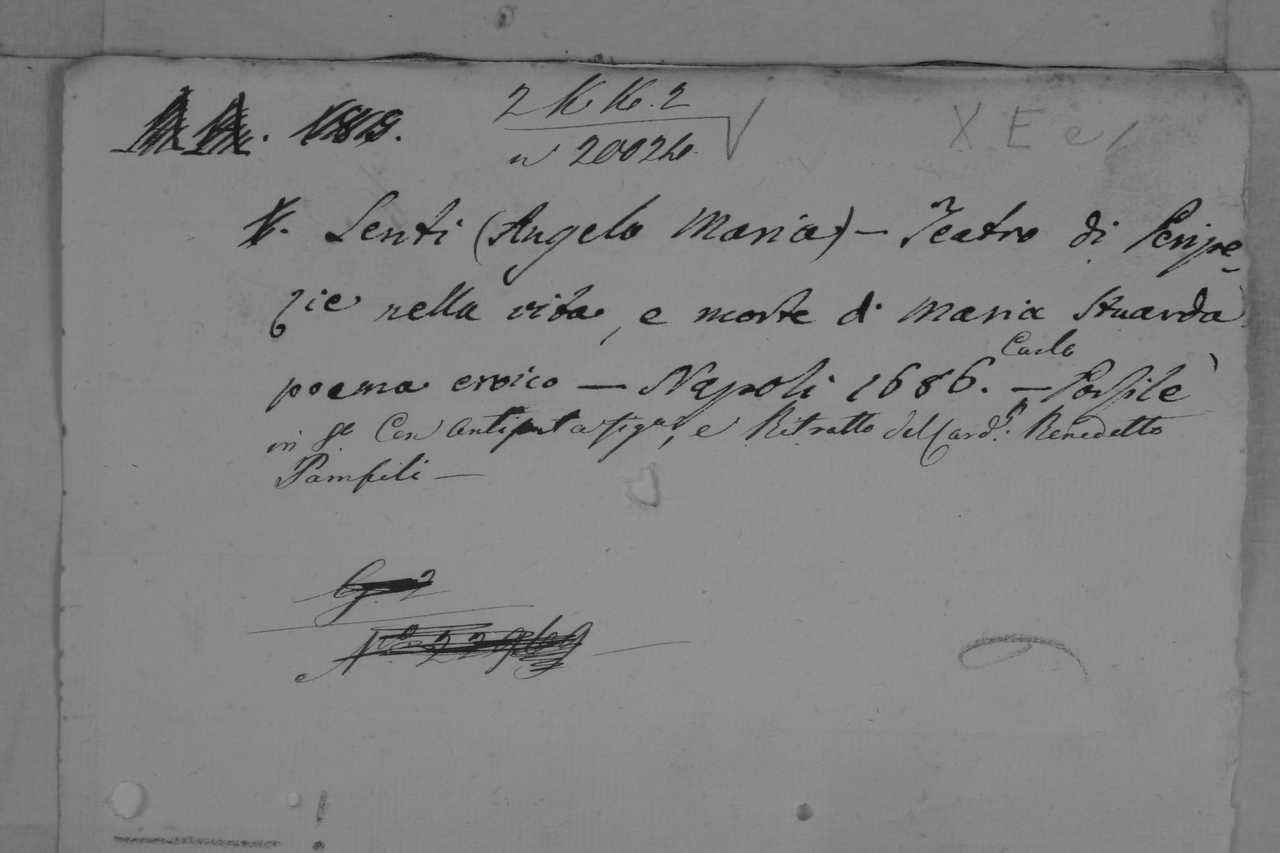 2 KK. 2
n 20024
X E e
V. Lenti (Angelo Maria) — Teatro di Peripe-
zie nella vita, e morte di Maria Stuarda
poema eroico — Napoli 1686. — Carlo Porsile
in 8º Con Antiporta figur, e Ritratto del Card. Benedetto
Pamfili —